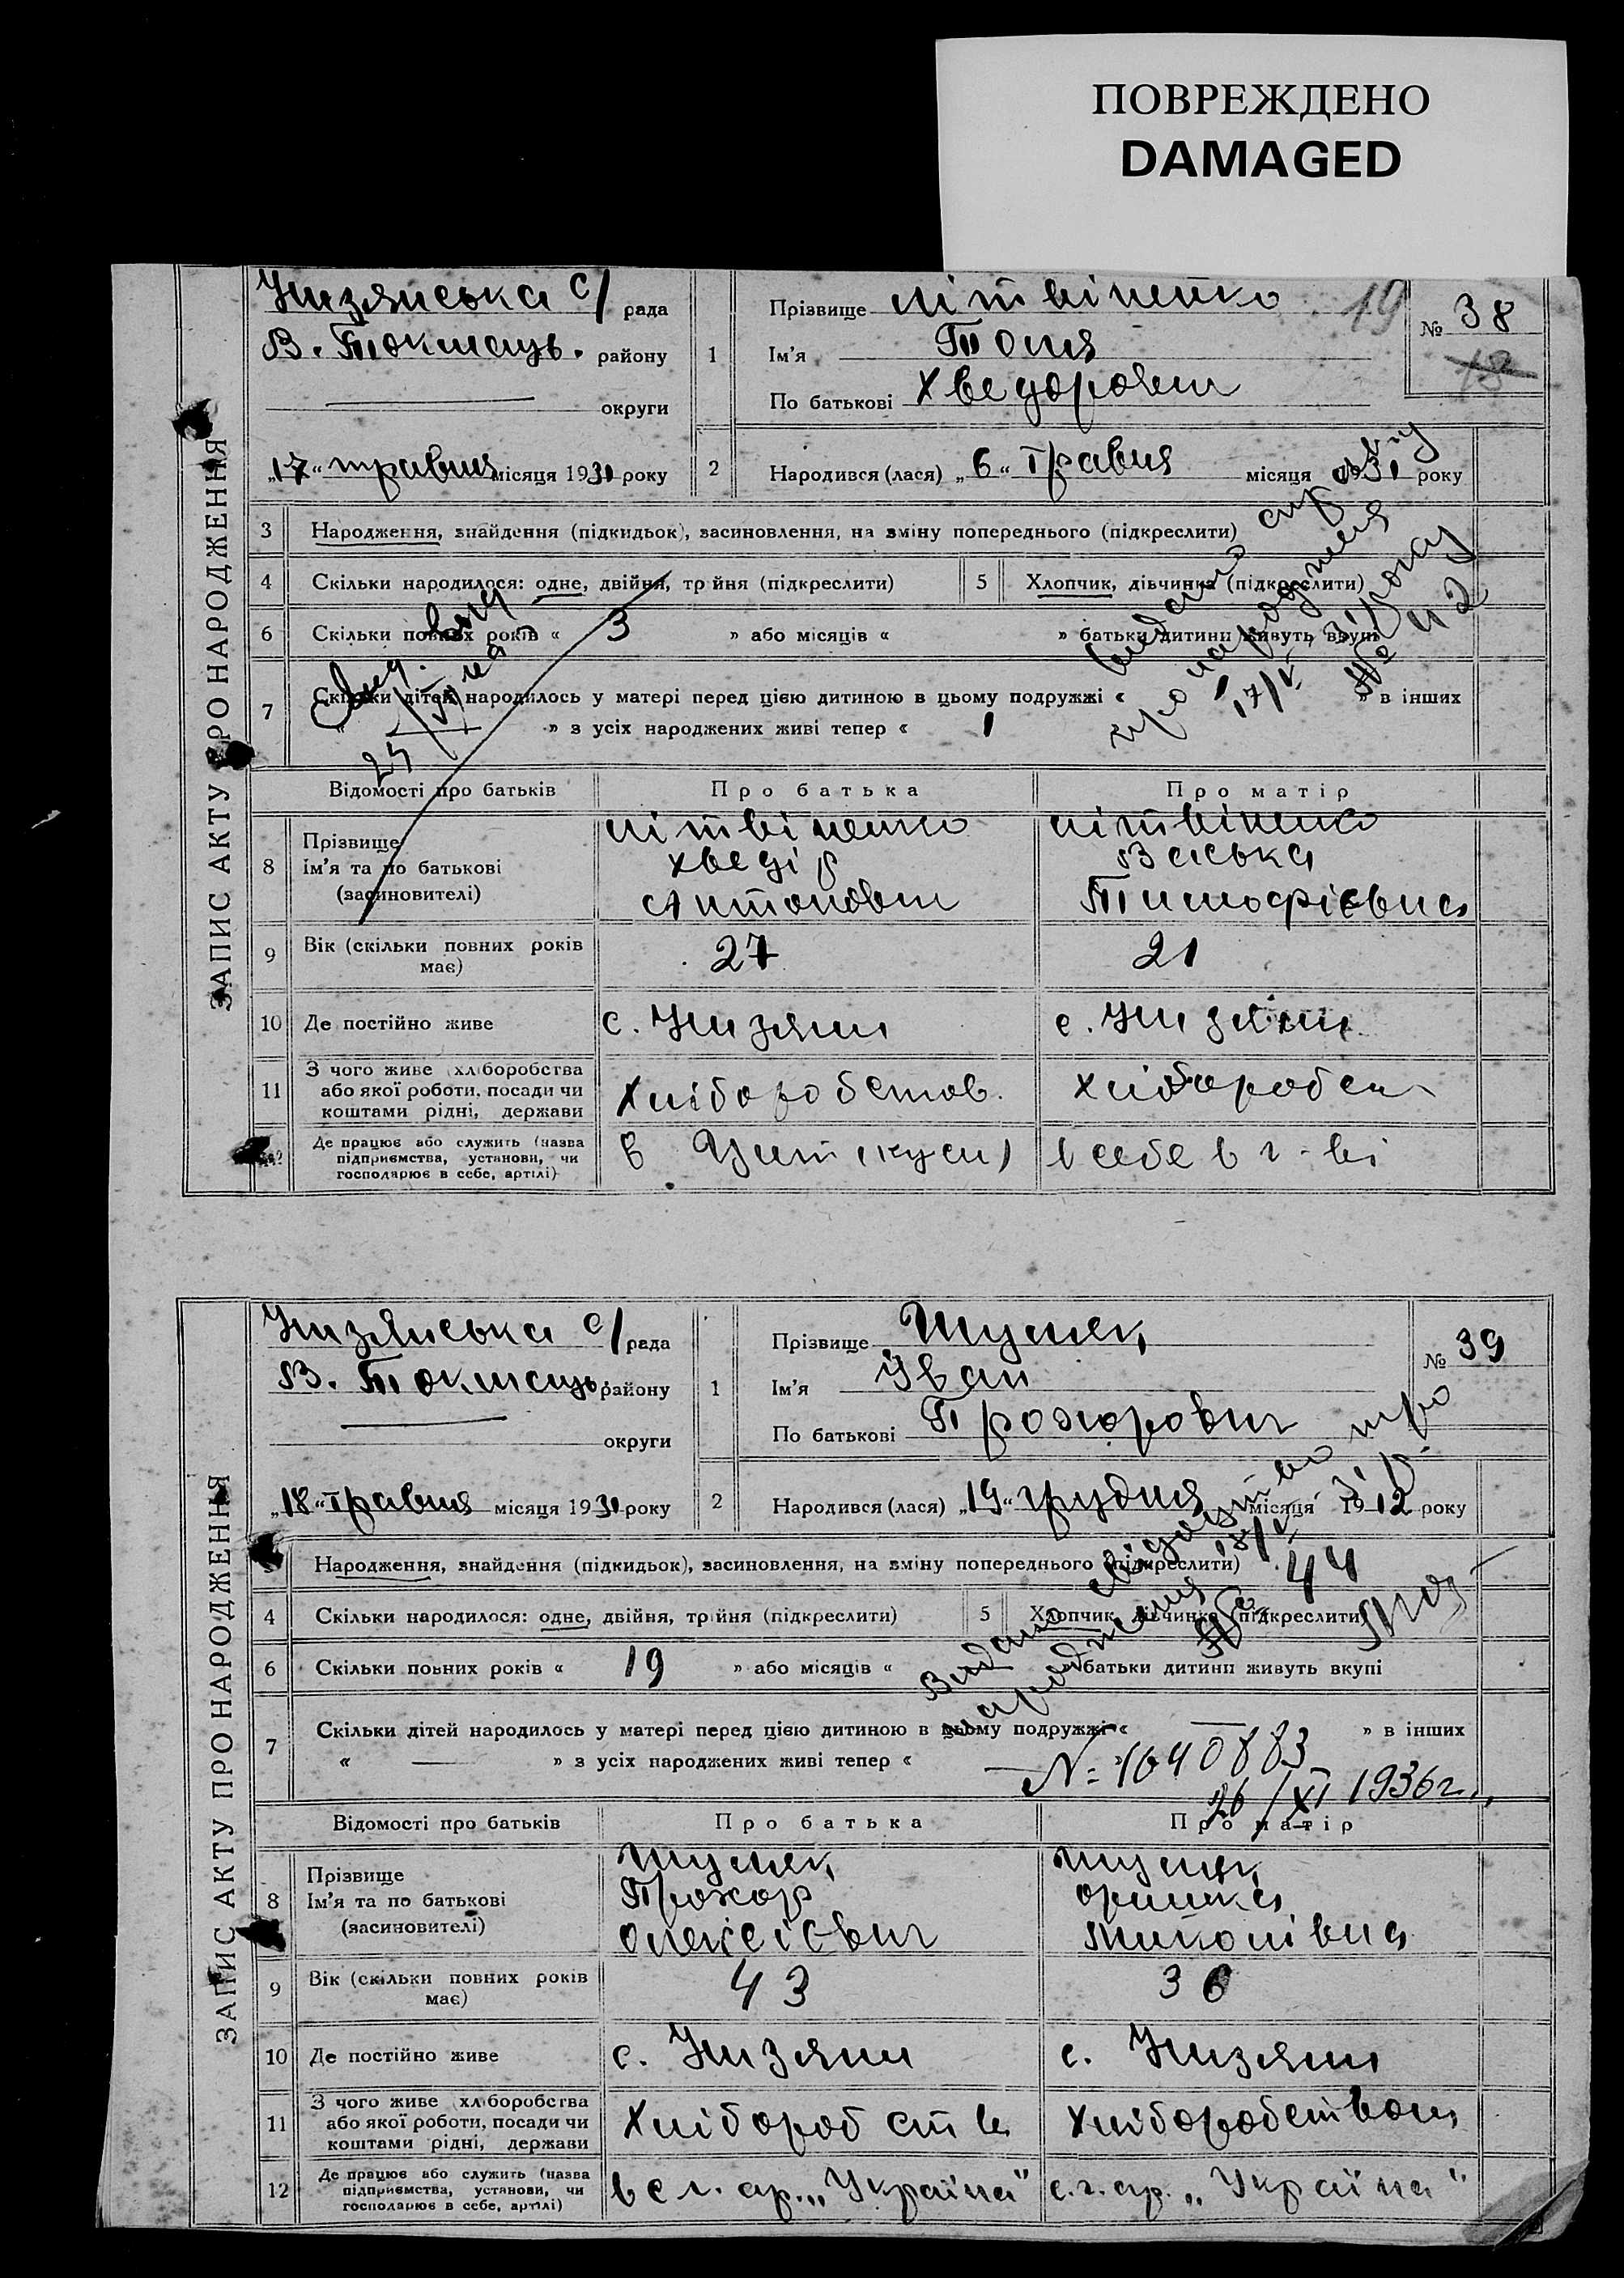 ПОВРЕЖДЕНО
DAMAGED
ЗАПИС АКТУ ПРО НАРОДЖЕННЯ
Низянська с/рада
В. Токмаць. району
округи
„17“ травня місяця 1931 року
1
Прізвище Літвіненко
Ім'я
По батькові Хведорович
19
№ 38
18
2
Народився (лася) „6“ травня місяця 1931 року
3 Народження, знайдення (підкидьок), засиновлення, на зміну попереднього (підкреслити)
4 Скільки народилося: одне, двійня, тройня (підкреслити) 5 Хлопчик, дівчинка (підкреслити)
6 Скільки повних років « 3 » або місяців « » батьки дитини живуть вкупі
7 Скільки дітей народилось у матері перед цією дитиною в цьому подружжі « » в інших
» з усіх народжених живі тепер « 1
видано
про народження
17/V 31 року
№ 42
Відомості про батьків Про батька Про матір
8 Прізвище Ім'я та по батькові (засиновителі)
Літвіненко Літвіненко
Хведір Васька
Антонович Тимофієвна
9 Вік (скільки повних років має) 27 21
10 Де постійно живе с. Низяни с. Низяни
11 З чого живе (хліборобства або якої роботи, посади чи коштами рідні, держави Хліборобством. Хлібороб
12 Де працює або служить (назва підприємства, установи, чи господарює в себе, артілі) в себе в г-ві
ЗАПИС АКТУ ПРО НАРОДЖЕННЯ
Низянська с/рада
В. Токмаць. району
округи
„18“ травня місяця 1931 року
1
Прізвище
Ім'я Іван
По батькові Прохорович
№ 39
2
Народився (лася) „19“ грудня місяця 1912 року
3 Народження, знайдення (підкидьок), засиновлення, на зміну попереднього (підкреслити)
4 Скільки народилося: одне, двійня, тройня (підкреслити) 5 Хлопчик, дівчинка (підкреслити)
6 Скільки повних років « 19 » або місяців « батьки дитини живуть вкупі
7 Скільки дітей народилось у матері перед цією дитиною в цьому подружжі « — » в інших
« — » з усіх народжених живі тепер «
Видано свідоцтво про
народження 18/V 31 р.
№ 44
№ 1640883
26/XI 1936 г.
Відомості про батьків Про батька Про матір
8 Прізвище Ім'я та по батькові (засиновителі)
Прохор Оришка
Олексієвич Миколівна
9 Вік (скільки повних років має) 43 36
10 Де постійно живе с. Низяни с. Низяни
11 З чого живе (хліборобства або якої роботи, посади чи коштами рідні, держави Хліборобств Хліборобством
12 Де працює або служить (назва підприємства, установи, чи господарює в себе, артілі) в с.г. ар. „Україна“ с.г. ар. „Україна“